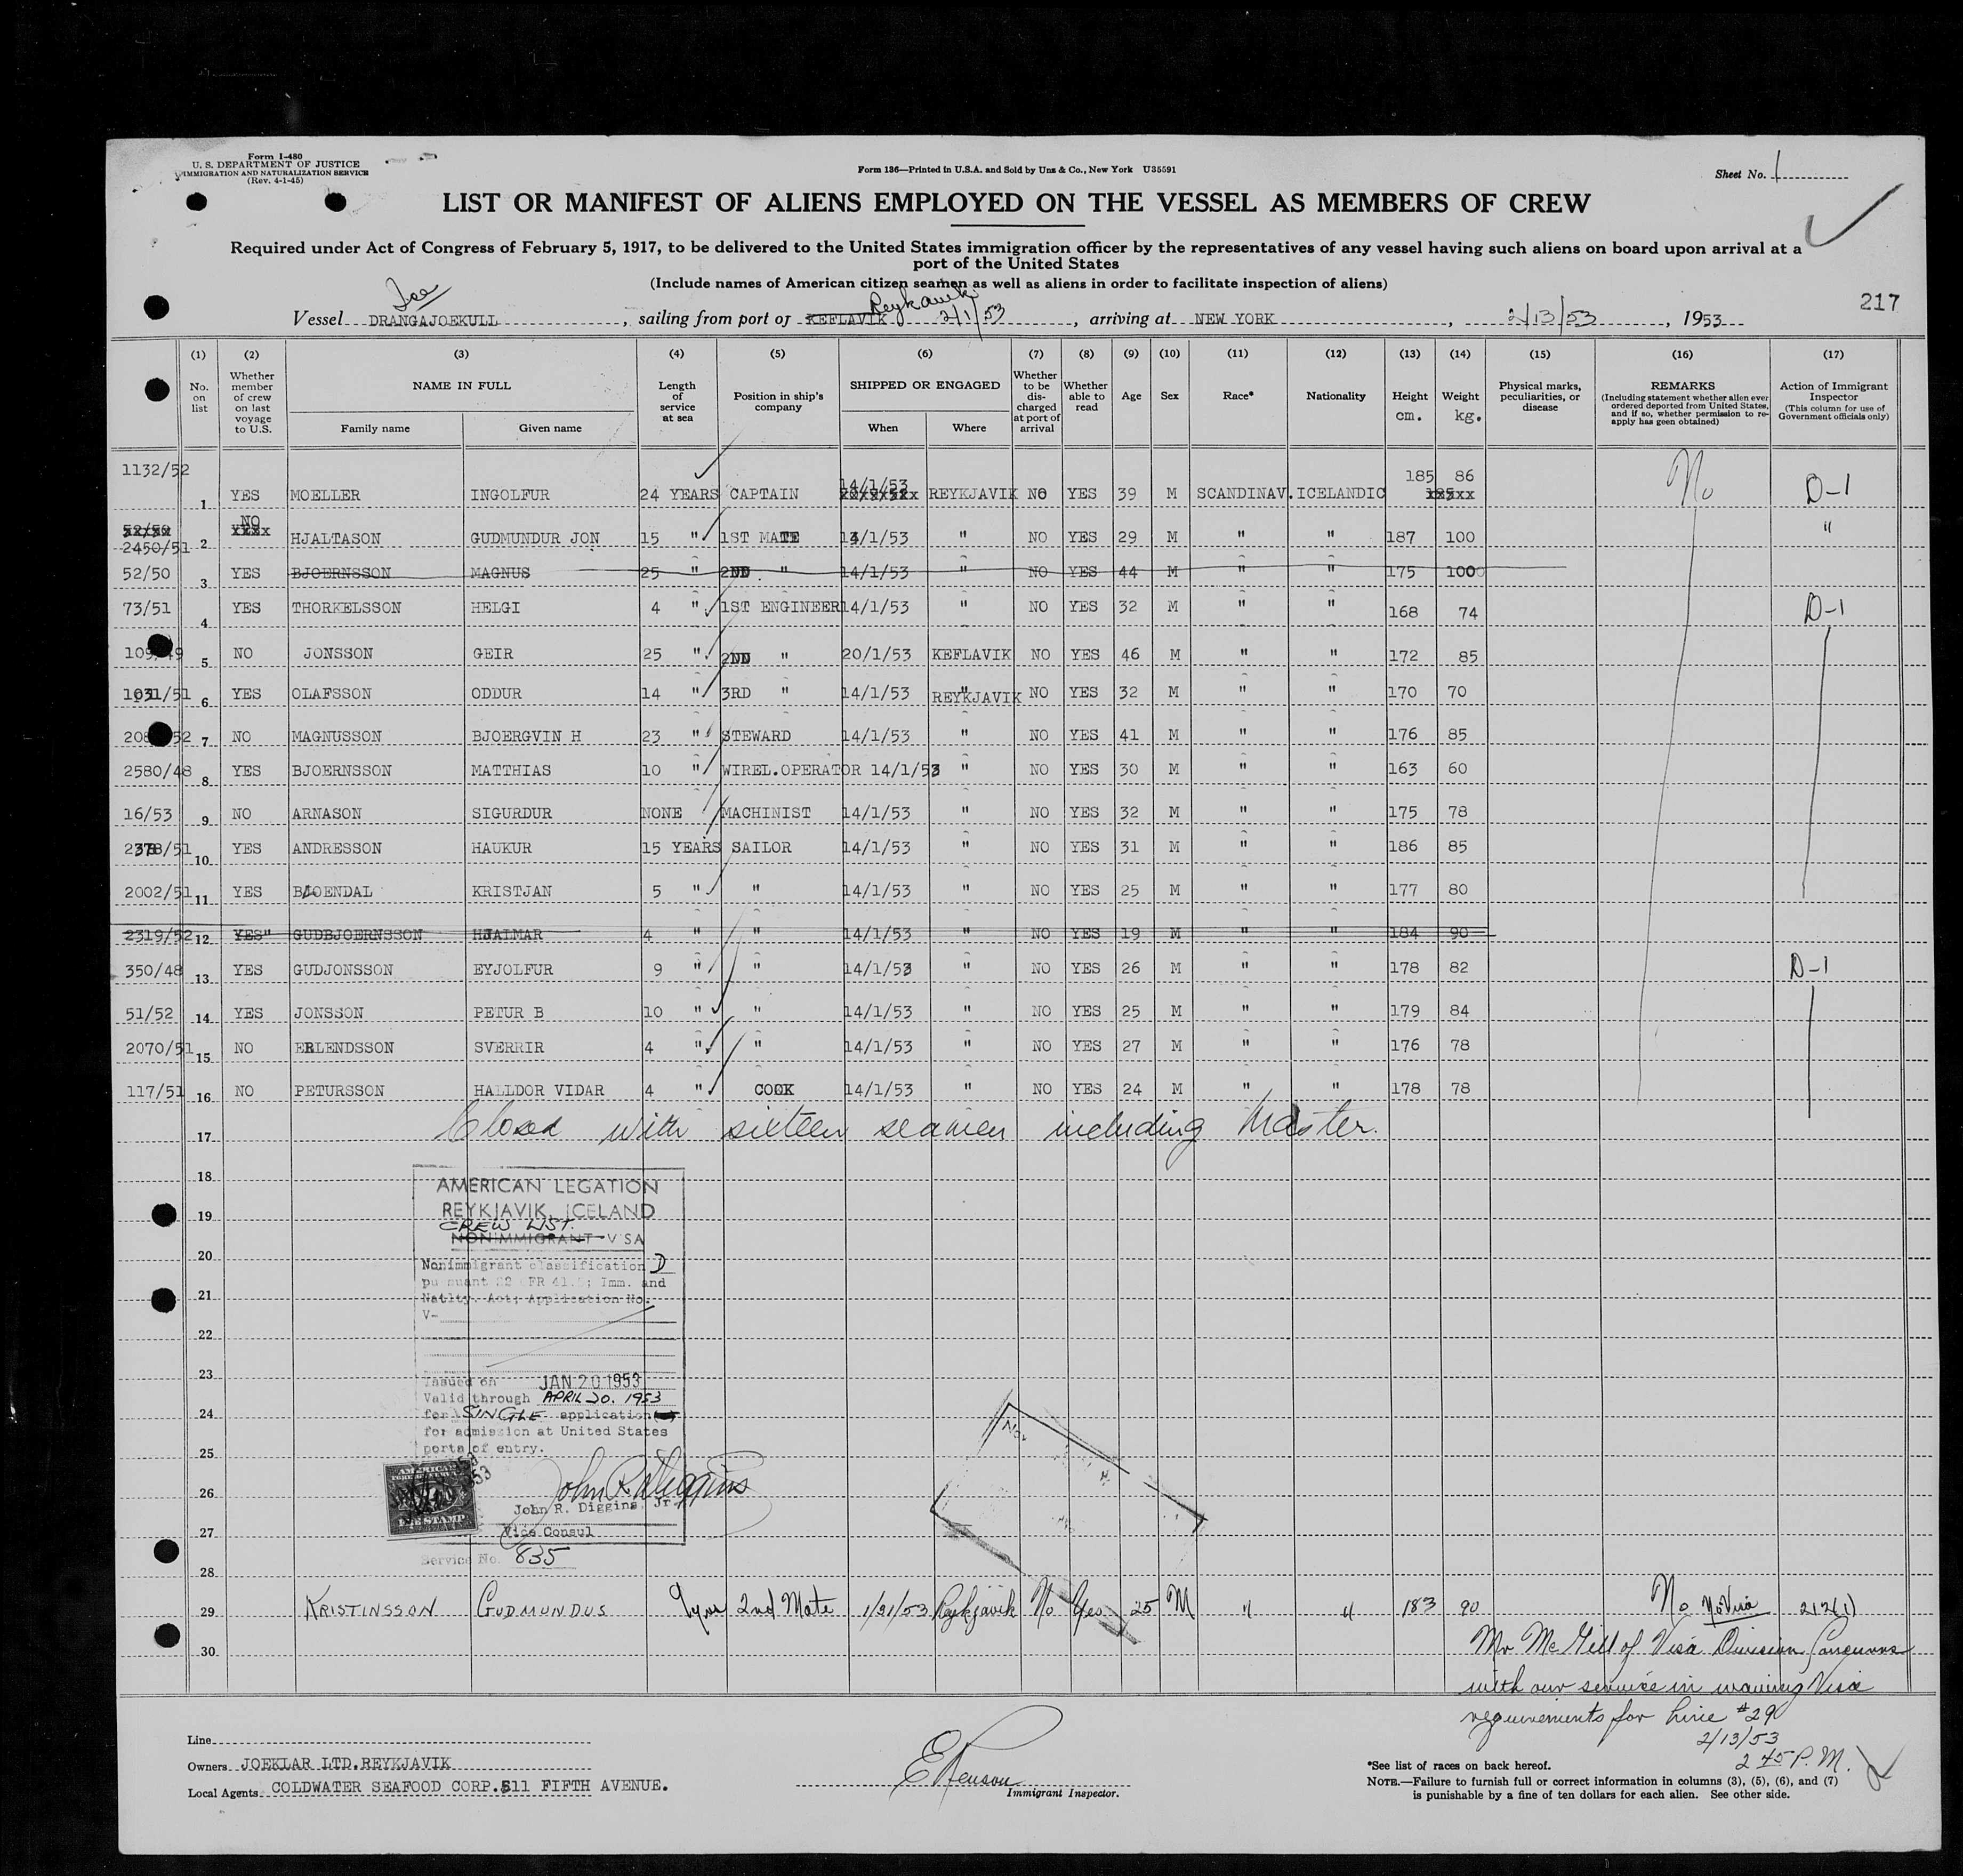 Form I-480
U. S. DEPARTMENT OF JUSTICE
IMMIGRATION AND NATURALIZATION SERVICE
(Rev. 4-1-45)
Form 136—Printed in U.S.A. and Sold by Unz & Co., New York U35591
Sheet No. 1
LIST OR MANIFEST OF ALIENS EMPLOYED ON THE VESSEL AS MEMBERS OF CREW
Required under Act of Congress of February 5, 1917, to be delivered to the United States immigration officer by the representatives of any vessel having such aliens on board upon arrival at a
port of the United States
(Include names of American citizen seamen as well as aliens in order to facilitate inspection of aliens)
Reykavik
Vessel DRANGAJOEKULL, sailing from port of KEFLAVIK 2/1/53, arriving at NEW YORK, 2/13/53, 1953
217
(1) (2) (3) (4) (5) (6) (7) (8) (9) (10) (11) (12) (13) (14) (15) (16) (17)
No. on list
Whether member of crew on last voyage to U.S.
NAME IN FULL
Family name Given name
Length of service at sea
Position in ship's company
SHIPPED OR ENGAGED
When Where
Whether to be discharged at port of arrival
Whether able to read
Age Sex Race* Nationality
Height cm.
Weight kg.
Physical marks, peculiarities, or disease
REMARKS
(Including statement whether alien ever ordered deported from United States, and if so, whether permission to re-apply has geen obtained)
Action of Immigrant Inspector
(This column for use of Government officials only)
1132/52 1 YES MOELLER INGOLFUR 24 YEARS CAPTAIN 14/1/53 REYKJAVIK NO YES 39 M SCANDINAV. ICELANDIC 185 86 No D-1
2450/51 2 NO HJALTASON GUDMUNDUR JON 15 " 1ST MATE 14/1/53 " NO YES 29 M " " 187 100 "
52/50 3 YES BJOERNSSON MAGNUS 25 " 2ND " 14/1/53 " NO YES 44 M " " 175 100
73/51 4 YES THORKELSSON HELGI 4 " 1ST ENGINEER 14/1/53 " NO YES 32 M " " 168 74 D-1
109/49 5 NO JONSSON GEIR 25 " 2ND " 20/1/53 KEFLAVIK NO YES 46 M " " 172 85
1031/51 6 YES OLAFSSON ODDUR 14 " 3RD " 14/1/53 REYKJAVIK NO YES 32 M " " 170 70
7 NO MAGNUSSON BJOERGVIN H 23 " STEWARD 14/1/53 " NO YES 41 M " " 176 85
2580/48 8 YES BJOERNSSON MATTHIAS 10 " WIREL.OPERATOR 14/1/53 " NO YES 30 M " " 163 60
16/53 9 NO ARNASON SIGURDUR NONE MACHINIST 14/1/53 " NO YES 32 M " " 175 78
2378/51 10 YES ANDRESSON HAUKUR 15 YEARS SAILOR 14/1/53 " NO YES 31 M " " 186 85
2002/51 11 YES BLOENDAL KRISTJAN 5 " " 14/1/53 " NO YES 25 M " " 177 80
2319/52 12 YES" GUDBJOERNSSON HJALMAR 4 " " 14/1/53 " NO YES 19 M " " 184 90
350/48 13 YES GUDJONSSON EYJOLFUR 9 " " 14/1/53 " NO YES 26 M " " 178 82 D-1
51/52 14 YES JONSSON PETUR B 10 " " 14/1/53 " NO YES 25 M " " 179 84
2070/51 15 NO ERLENDSSON SVERRIR 4 " " 14/1/53 " NO YES 27 M " " 176 78
117/51 16 NO PETURSSON HALLDOR VIDAR 4 " COOK 14/1/53 " NO YES 24 M " " 178 78
Closed with sixteen seamen including Master.
17
18
19
20
21
22
23
24
25
26
27
28
AMERICAN LEGATION
REYKJAVIK, ICELAND
CREW LIST
NONIMMIGRANT VISA
Nonimmigrant classification D
pursuant 22 CFR 41.; Imm. and
Natlty. Act; Application No.
V-
Issued on JAN 20 1953
Valid through APRIL 20. 1953
for SINGLE application
for admission at United States
ports of entry.
John R. Diggins
John R. Diggins, Jr.
Vice Consul
Service No. 835
AMERICAN
FEE STAMP
29 KRISTINSSON GUDMUNDUS 9 yrs 2nd Mate 1/21/53 Reykjavik No Yes 25 M " " 183 90 No No Visa 212(1)
30
Mr McGill of Visa Division Concurs
with our service in waiving Visa
requirements for line #29
2/13/53
2 45 P. M.
Line
Owners JOEKLAR LTD.REYKJAVIK
Local Agents COLDWATER SEAFOOD CORP.511 FIFTH AVENUE.
Immigrant Inspector.
*See list of races on back hereof.
NOTE.—Failure to furnish full or correct information in columns (3), (5), (6), and (7)
is punishable by a fine of ten dollars for each alien. See other side.